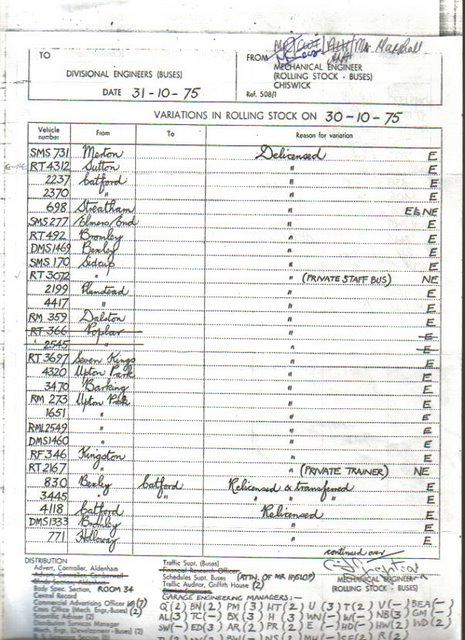 TO
FROM
DIVISIONAL ENGINEERS (BUSES)
MECHANICAL ENGINEER
(ROLLING STOCK - BUSES)
CHISWICK
DATE 31-10-75
Ref. 508/1
VARIATIONS IN ROLLING STOCK ON 30-10-75
Vehicle number From To Reason for variation
SMS 731 Merton Delicensed E
RT 4312 Sutton " E
2237 Catford " E
2370 " " E
698 Streatham " E & NE
SMS 277 Elmers End " E
RT 492 Bromley " E
DMS 1469 Bexley " E
SMS 170 Sidcup " E
RT 3072 " " (PRIVATE STAFF BUS) NE
2199 Plumstead " E
4417 " " E
RM 359 Dalston " E
RT 366 Poplar " E
2545 " " E
RT 3697 Seven Kings " E
4320 Upton Park " E
3470 Barking " E
RM 273 Upton Park " E
1651 " " E
RML 2549 " " E
DMS 1460 " " E
RF 346 Kingston " E
RT 2167 " " (PRIVATE TRAINER) NE
830 Bexley Catford Relicensed & transferred E
3445 " " " " E
4118 Catford Relicensed E
DMS 1333 Bromley " E
771 Holloway " E
continued over
DISTRIBUTION
Advert. Controller, Aldenham
Body Spec. Section, ROOM 34
Central Record
Commercial Advertising Officer
Crws Office (Mech Eng.-Buses) (2)
Scientific Adviser (2)
Distribution Services Manager
Mech. Engr. (Development - Buses) (2)
Traffic Supt. (Buses)
Financial Research Officer
Schedules Supt. Buses (ATTN. OF MR HYSLOP)
Traffic Auditor, Griffith House (2)
MECHANICAL ENGINEER
(ROLLING STOCK - BUSES)
GARAGE ENGINEERING MANAGERS:-
Q (2) BN (2) PM (3) HT (2) U (3) T (2) V (-) BEA (-)